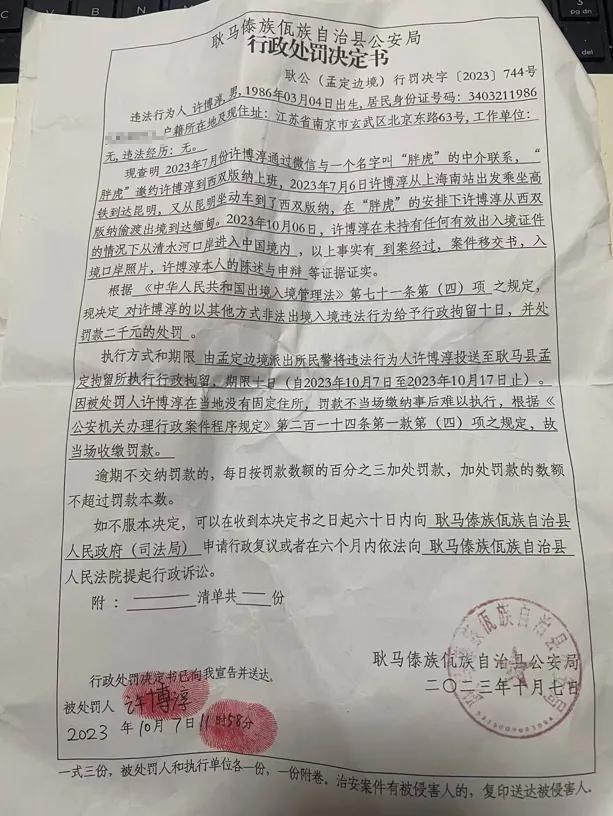 pg dn
耿马傣族佤族自治县公安局
行政处罚决定书
耿公（孟定边境）行罚决字〔2023〕744号
违法行为人 许博淳,男,1986年03月04日出生,居民身份证号码：3403211986
户籍所在地及现住址：江苏省南京市玄武区北京东路63号,工作单位：
无,违法经历：无。
现查明 2023年7月份许博淳通过微信与一个名字叫“胖虎”的中介联系，“
胖虎”邀约许博淳到西双版纳上班，2023年7月6日许博淳从上海南站出发乘坐高
铁到达昆明，又从昆明坐动车到了西双版纳，在“胖虎”的安排下许博淳从西双
版纳偷渡出境到达缅甸。2023年10月06日，许博淳在未持有任何有效出入境证件
的情况下从清水河口岸进入中国境内，以上事实有 到案经过，案件移交书，入
境口岸照片，许博淳本人的陈述与申辩 等证据证实。
根据 《中华人民共和国出境入境管理法》第七十一条第（四）项 之规定，
现决定 对许博淳的以其他方式非法出境入境违法行为给予行政拘留十日，并处
罚款二千元的处罚 。
执行方式和期限 由孟定边境派出所民警将违法行为人许博淳投送至耿马县孟
定拘留所执行行政拘留，期限十日（自2023年10月7日至2023年10月17日止）。
因被处罚人许博淳在当地没有固定住所，罚款不当场缴纳事后难以执行，根据《
公安机关办理行政案件程序规定》第二百一十四条第一款第（四）项之规定，故
当场收缴罚款。
逾期不交纳罚款的，每日按罚款数额的百分之三加处罚款，加处罚款的数额
不超过罚款本数。
如不服本决定，可以在收到本决定书之日起六十日内向 耿马傣族佤族自治县
人民政府（司法局） 申请行政复议或者在六个月内依法向 耿马傣族佤族自治县
人民法院提起行政诉讼。
附： 清单共 份
耿马傣族佤族自治县公安局
二〇二三年十月七日
行政处罚决定书已向我宣告并送达。
被处罚人 许博淳
2023 年 10 月 7 日 11 时 58 分
一式三份，被处罚人和执行单位各一份，一份附卷。治安案件有被侵害人的，复印送达被侵害人。